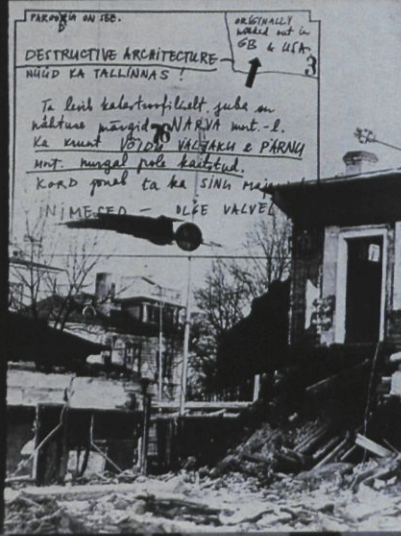 PAROODIA ON SEE.
ORIGINALLY
worked out in
GB & USA.
3
DESTRUCTIVE ARCHITECTURE
NÜÜD KA TALLINNAS!
Ta levib katastroofiliselt, juba on
nähtuse märgid NARVA mnt.-l.
76
Ka krunt VÕIDU VÄLJAKU & PÄRNU
mnt. nurgal pole kaitstud.
KORD jõuab ta ka SINU maja
INIMESED — OLGE VALVEL